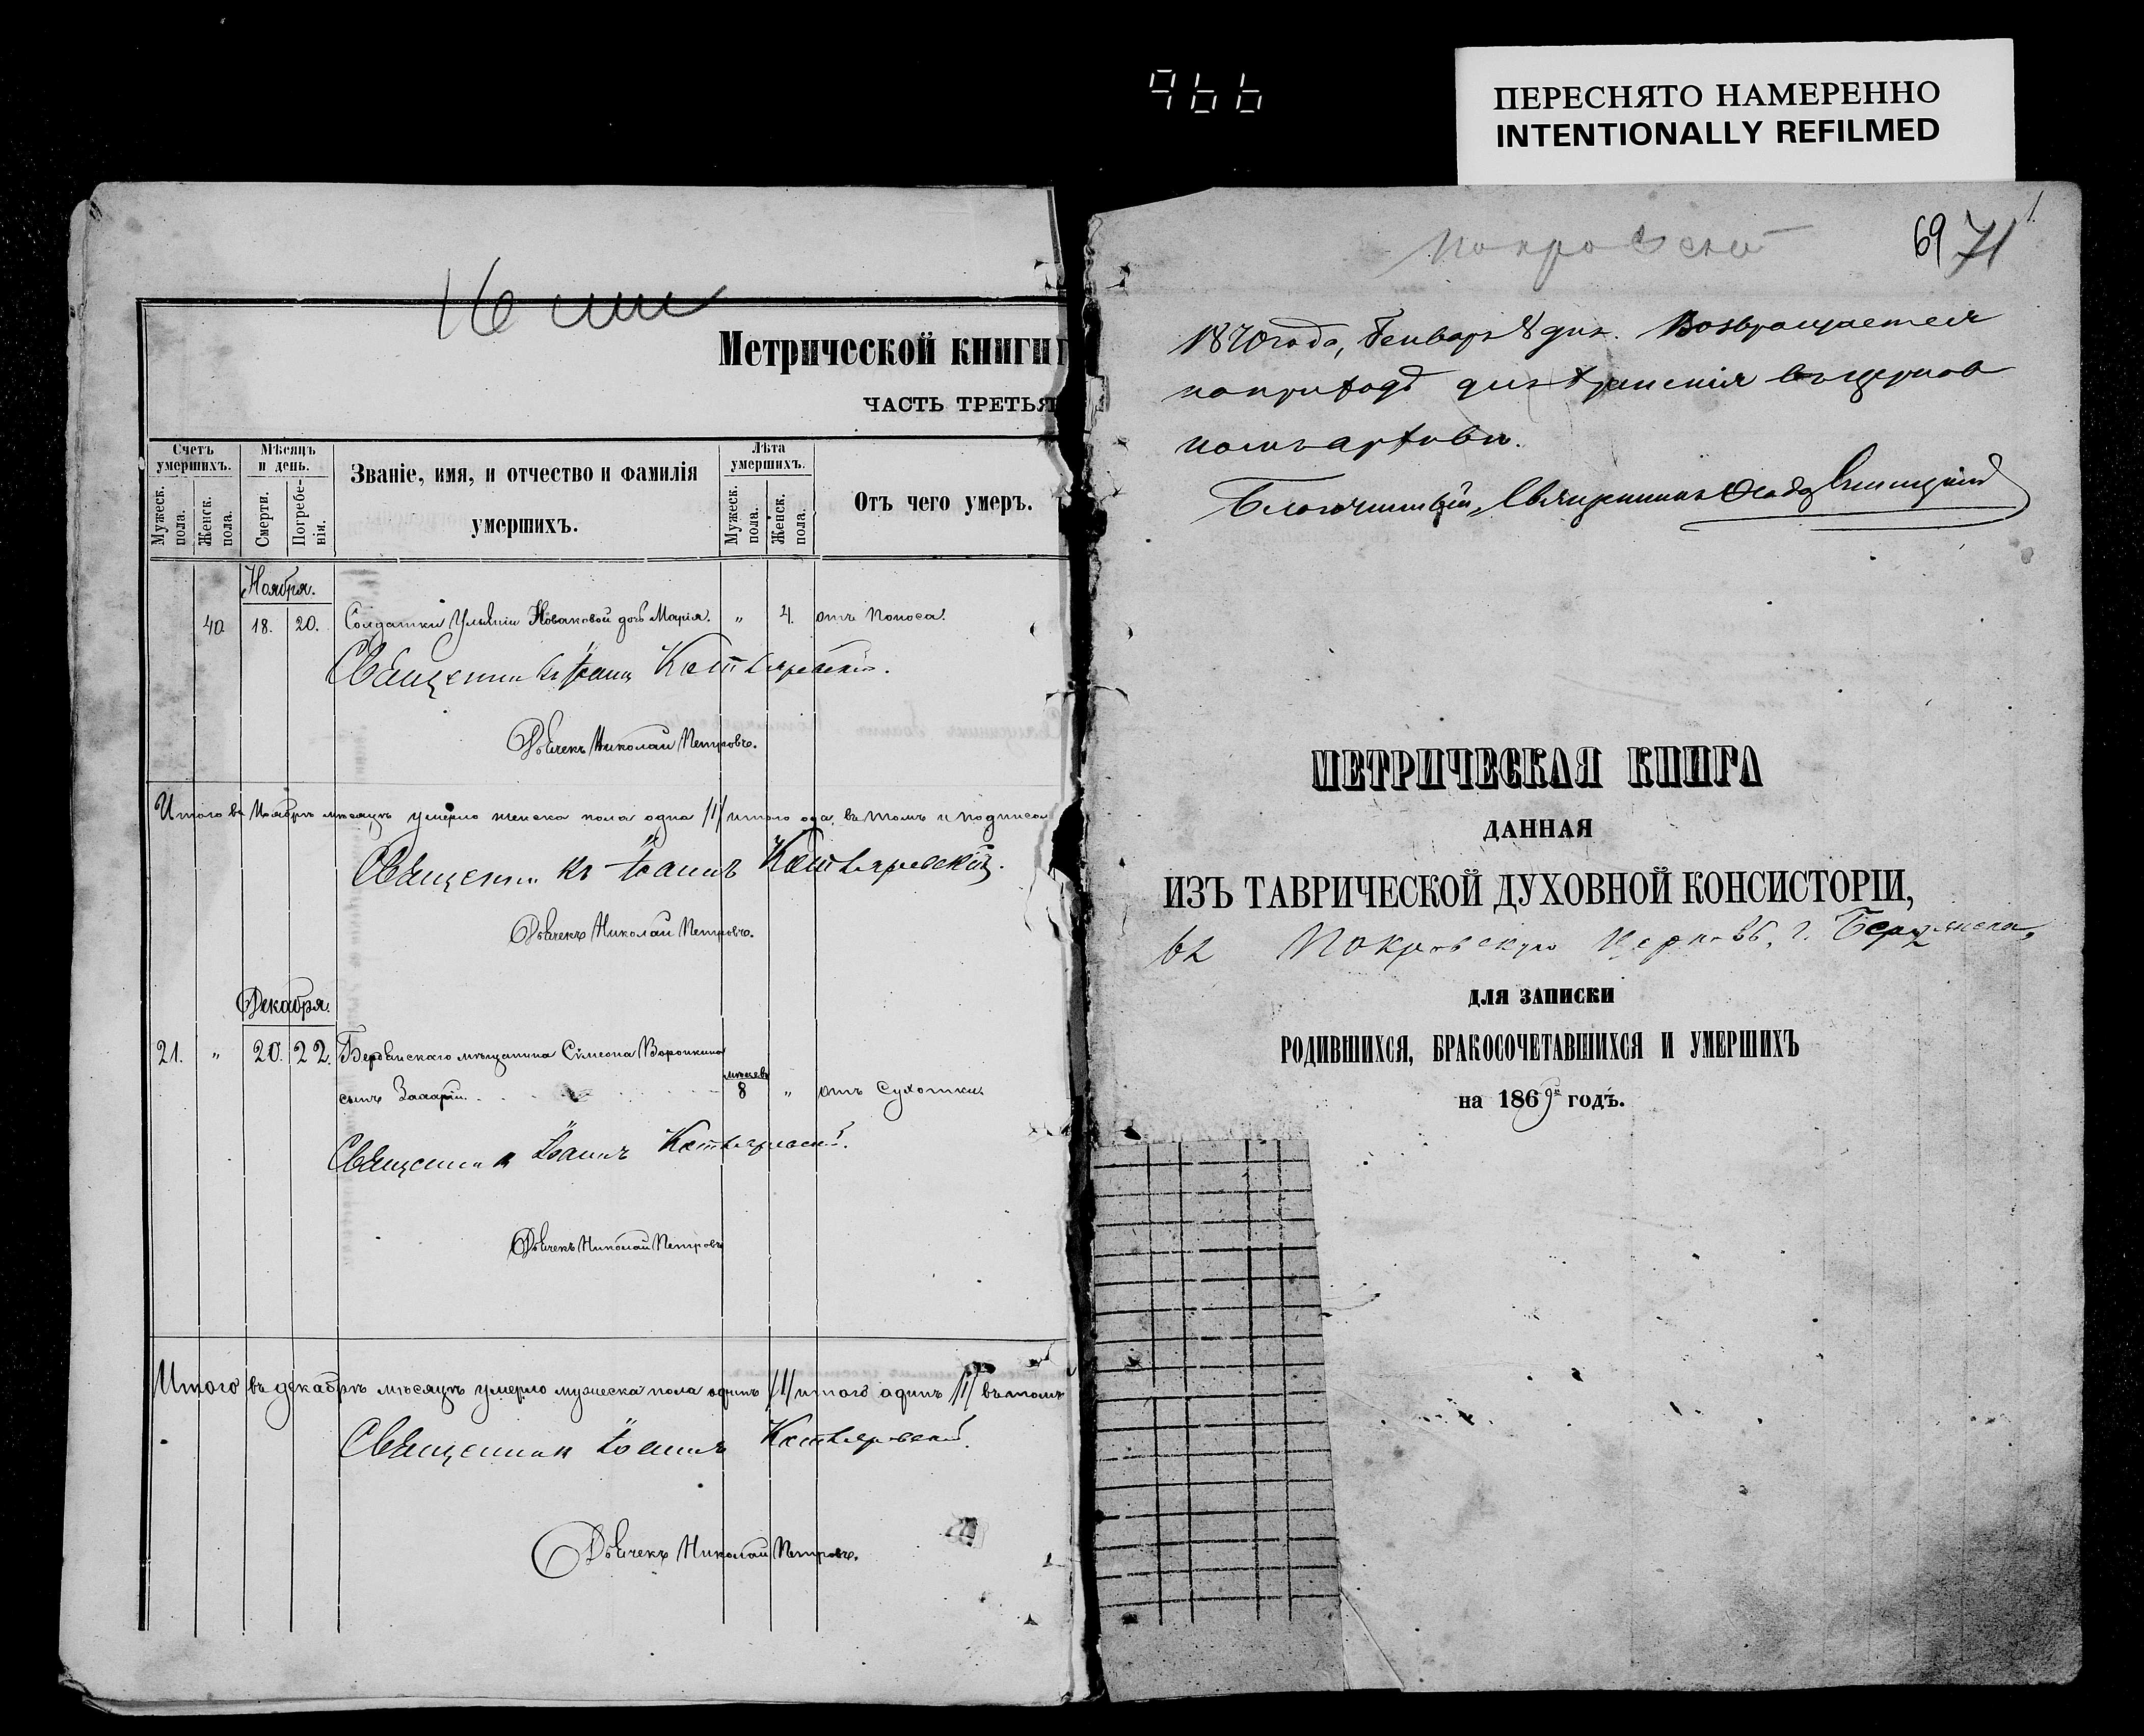 966
ПЕРЕСНЯТО НАМЕРЕННО
INTENTIONALLY REFILMED
Метрической книги
ЧАСТЬ ТРЕТЬЯ
Счетъ умершихъ.
Мужеск. пола.
Женск. пола.
Мѣсяцъ и день.
Смерти.
Погребе-нія.
Званіе, имя, и отчество и фамилія
умершихъ.
Лѣта умершихъ.
Мужеск. пола.
Женск. пола.
Отъ чего умеръ.
Ноября.
40 18. 20. Солдатки Ульяніи Новаковой дочь Марія. „ 4. отъ поноса.
Священникъ Іоаннъ
Дьячекъ Николай Петровъ.
Итого въ Ноябрѣ мѣсяцѣ умерло женска пола одна /1/ итого одна, въ томъ и подписом
Священникъ Іоаннъ
Дьячекъ Николай Петровъ.
Декабря.
21. „ 20. 22. Бердянскаго мѣщанина Симеона Воронкина
сынъ Захарій. мѣсяцевъ 8 „ отъ Сухотки.
Священникъ Іоаннъ
Дьячекъ Николай Петровъ
Итого въ декабрѣ мѣсяцѣ умерло мужеска пола одинъ /1/ итого одинъ /1/ въ томъ
Священникъ Іоаннъ
Дьячекъ Николай Петровъ.
69 71
1870 года, Генваря 8 дня. Возвращается
по приходѣ для храненія въ церков
номъ архивѣ.
Благочинный, Священникъ
МЕТРИЧЕСКАЯ КНИГА
ДАННАЯ
ИЗЪ ТАВРИЧЕСКОЙ ДУХОВНОЙ КОНСИСТОРІИ,
въ Покровскую Церковь, г. Бердянска,
ДЛЯ ЗАПИСКИ
РОДИВШИХСЯ, БРАКОСОЧЕТАВШИХСЯ И УМЕРШИХЪ
на 1869й годъ.